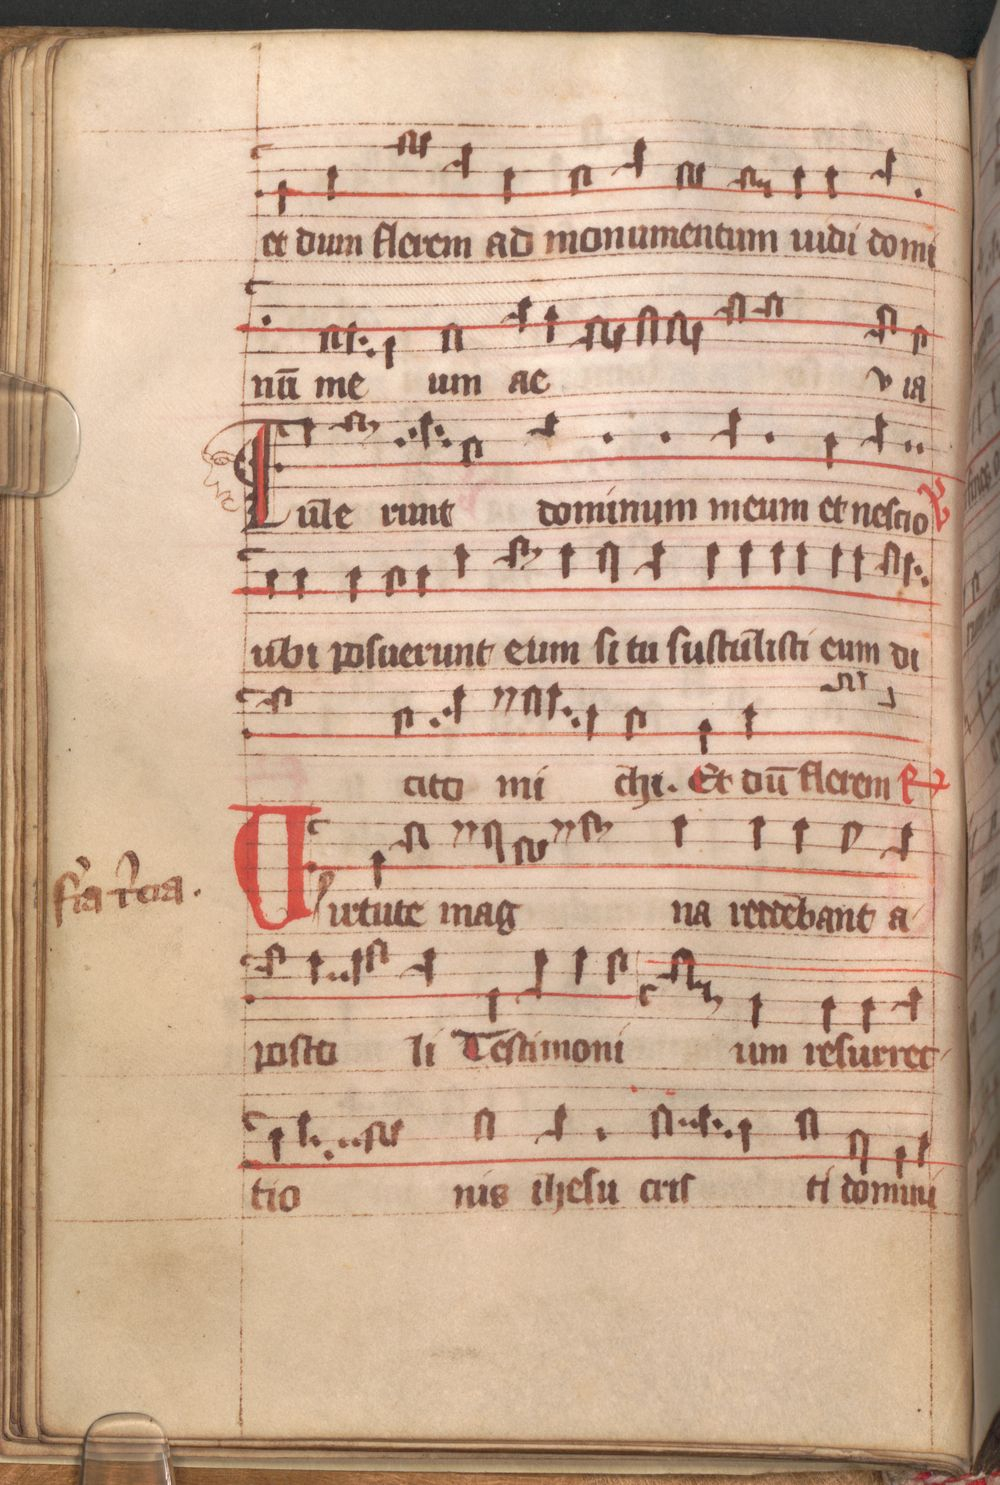 et dum flerem ad monumentum uidi domi
nū me um ae v ia
Tul̄e runt dominum meum et nescio
ub̄i posuerunt eum si tu sustul̄isti eum di
cito mi chi. Et dū flerem R
fr̄ia t̄cia.
Uirtute mag na reddebant a
posto li Testimoni um resurrec
tio nis ih̄esu cris ti domini